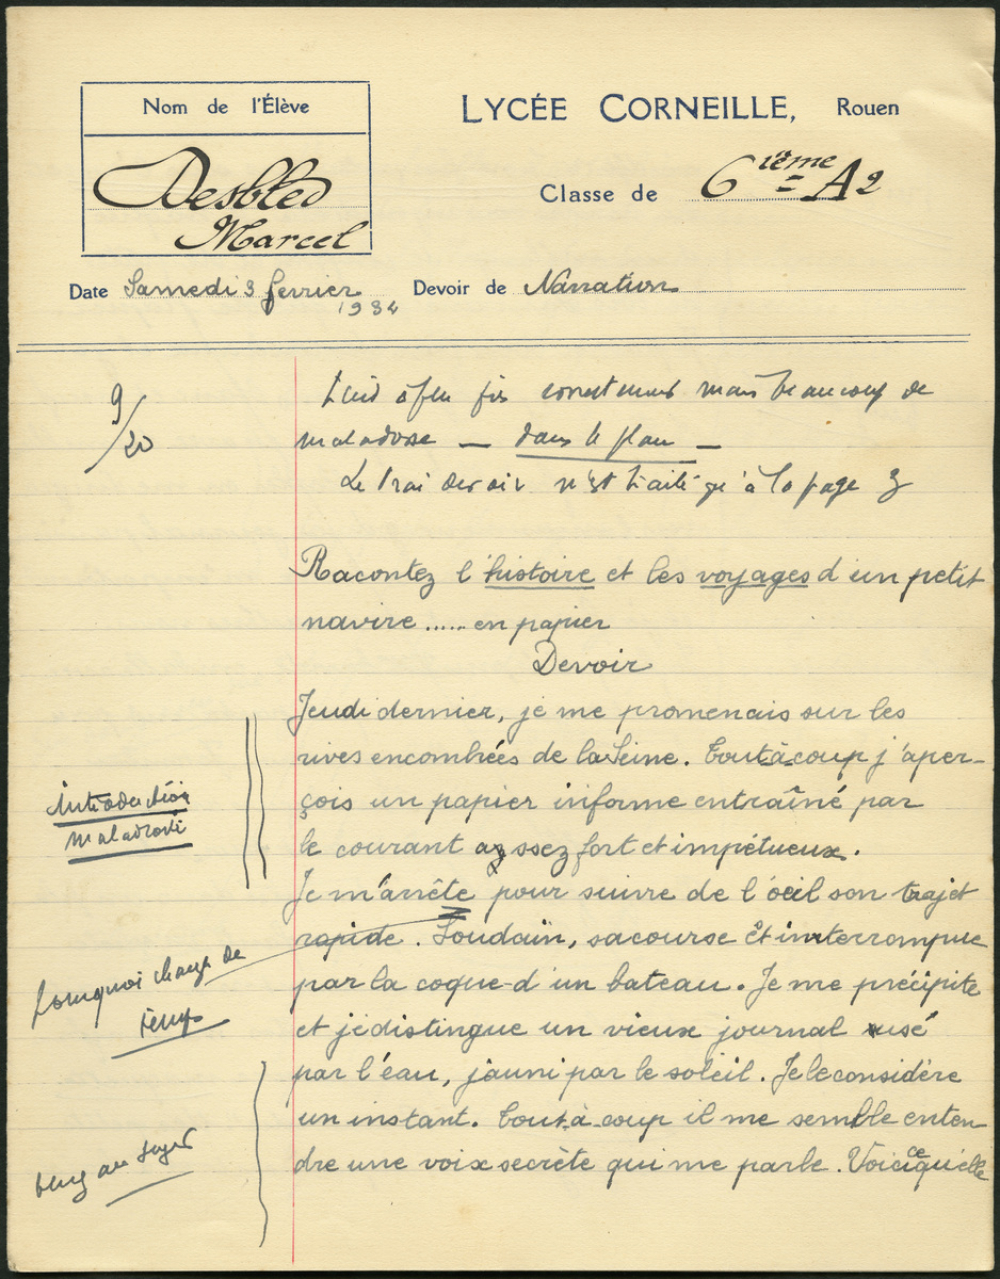 Nom de l'Élève
LYCÉE CORNEILLE, Rouen
Desbled
Marcel
Classe de 6ième A2
Date Samedi 3 ferrier 1934
Devoir de Narration
9/20
à peu près correctement mais beaucoup de
maladresse — dans le plan —
Le vrai devoir n'est traité qu'à la page 3
Racontez l'histoire et les voyages d'un petit
navire ..... en papier
Devoir
Jeudi dernier, je me promenais sur les
rives encombrées de la Seine. Tout à coup j'aper-
çois un papier informe entraîné par
le courant assez fort et impétueux.
introduction
maladroite
Je m'arrête pour suivre de l'oeil son trajet
rapide. Soudain, sa course êt interrompue
par la coque d'un bateau. Je me précipite
pourquoi changer de
temps
et je distingue un vieux journal usé
par l'éau, jauni par le soleil. Je le considère
un instant. Tout à coup il me semble enten
dre une voix secrète qui me parle. Voici ce qu'elle
venez au sujet